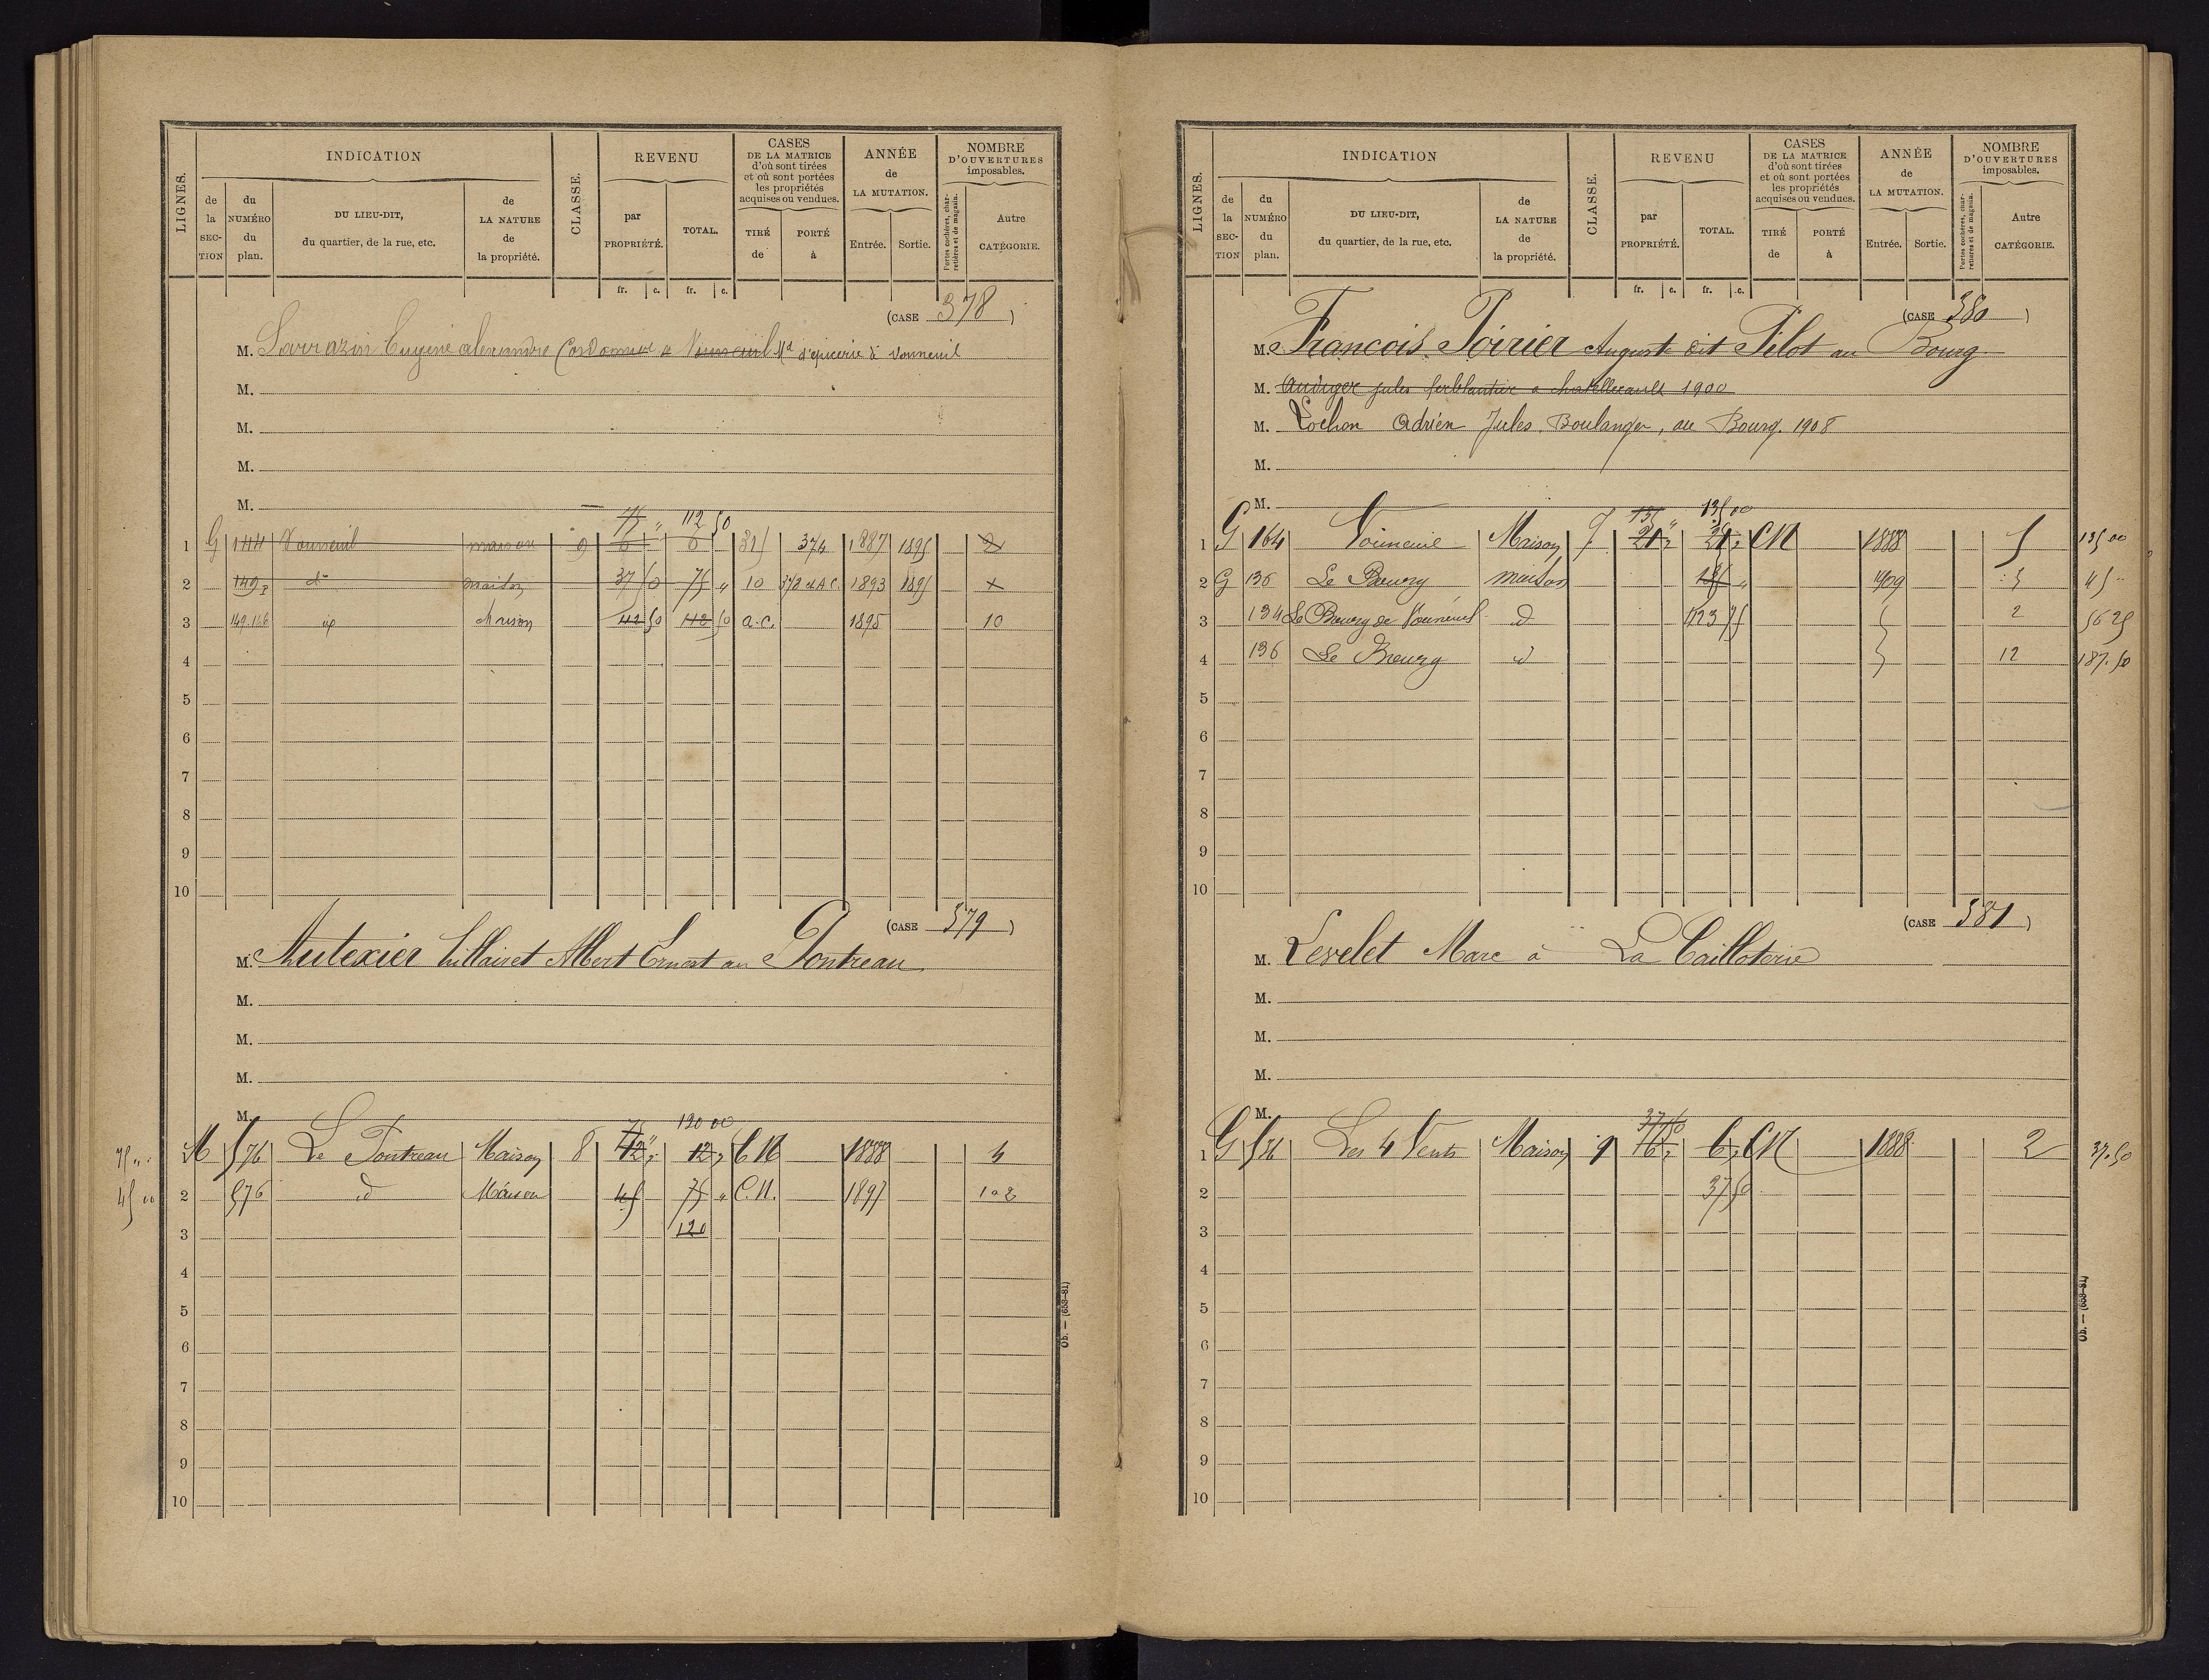 LIGNES.
INDICATION
CLASSE.
REVENU
CASES
DE LA MATRICE
d'où sont tirées
et où sont portées
les propriétés
acquises ou vendues.
ANNÉE
de
LA MUTATION.
NOMBRE
D'OUVERTURES
imposables.
de la SECTION
du NUMÉRO du plan.
DU LIEU-DIT,
du quartier, de la rue, etc.
de LA NATURE de la propriété.
par PROPRIÉTÉ.
TOTAL.
TIRÉ de
PORTÉ à
Entrée.
Sortie.
Portes cochères, charretières et de magasin.
Autre CATÉGORIE.
fr. c. fr. c.
(CASE 378)
M. Sarrazin Eugène alexandre Cordonnier a Vouneuil Md d'épicerie à Vouneuil
M.
M.
M.
M.
75 " 112 50
1 G 144 Vouneuil maison 9 6 " 6 315 374 1887 1895 2
2 149 d° maison 37 50 75 " 10 372 et A.C. 1893 1895
3 149.146 Maison 112 50 112 50 a.c. 1895 10
4
5
6
7
8
9
10
(CASE 379)
M. Autexier hillairet Albert Ernest au Pontreau
M.
M.
M.
M.
75 120 00
75 " M 576 Le Pontreau Maison 8 12 " 12 " CN 1888 4
45 00 2 576 d Maison 45 75 " C.N. 1897
3 120
4
5
6
7
8
9
10
Ob. — (653-81)
LIGNES.
INDICATION
CLASSE.
REVENU
CASES
DE LA MATRICE
d'où sont tirées
et où sont portées
les propriétés
acquises ou vendues.
ANNÉE
de
LA MUTATION.
NOMBRE
D'OUVERTURES
imposables.
de la SECTION
du NUMÉRO du plan.
DU LIEU-DIT,
du quartier, de la rue, etc.
de LA NATURE de la propriété.
par PROPRIÉTÉ.
TOTAL.
TIRÉ de
PORTÉ à
Entrée.
Sortie.
Portes cochères, charretières et de magasin.
Autre CATÉGORIE.
fr. c. fr. c.
(CASE 380)
M. François Poirier Auguste dit Pilot au Bourg
M. Audiger jules ferblantier a chatellerault 1900
M. Lochon Adrien Jules, Boulanger, au Bourg. 1908
M.
M.
135 " 135 00
1 G 164 Vouneuil Maison 7 21 " 21 " CN 1888 5 135 00
2 G 136 Le Bourg maison 1909 45 "
3 134 Le Bourg de Vouneuil d 2 56 25
4 136 Le Bourg d 12 187.50
5
6
7
8
9
10
(CASE 381)
M. Levelet Marc à La Cailloterie
M.
M.
M.
M.
37 50
1 G 536 Les 4 Vents Maison 9 6 " CN 1888 2 37.50
2 37 50
3
4
5
6
7
8
9
10
Ob. — (653-81)